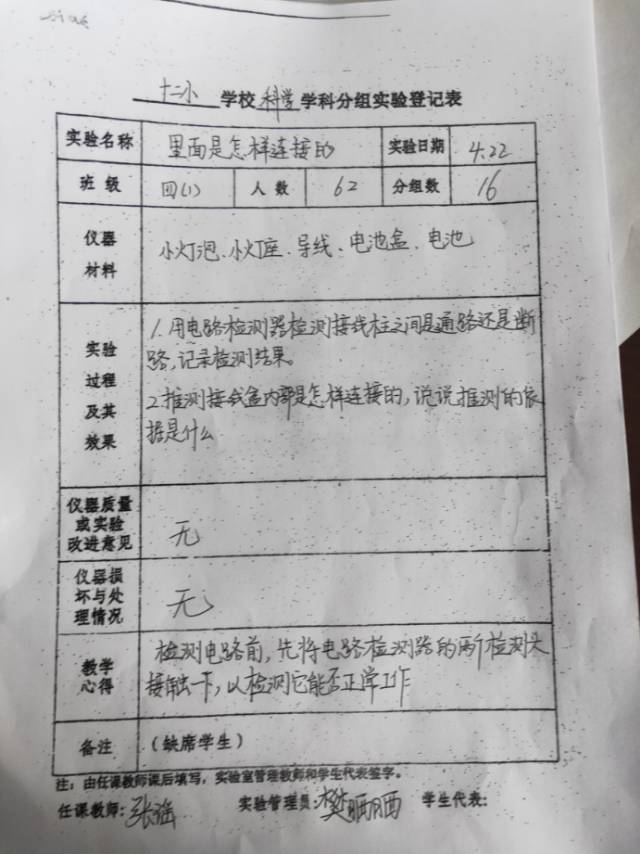 十二小学校科学学科分组实验登记表
实验名称 里面是怎样连接的 实验日期 4.22
班级 四(1) 人数 62 分组数 16
仪器材料 小灯泡、小灯座、导线、电池盒、电池
实验过程及其效果
1.用电路检测器检测接线柱之间是通路还是断
路,记录检测结果。
2.推测接线盒内部是怎样连接的,说说推测的依
据是什么
仪器质量或实验改进意见 无
仪器损坏与处理情况 无
教学心得
检测电路前,先将电路检测器的两个检测头
接触一下,以检测它能否正常工作
备注 (缺席学生)
注:由任课教师课后填写,实验室管理教师和学生代表签字。
任课教师:张瑞 实验管理员:樊晒晒 学生代表: